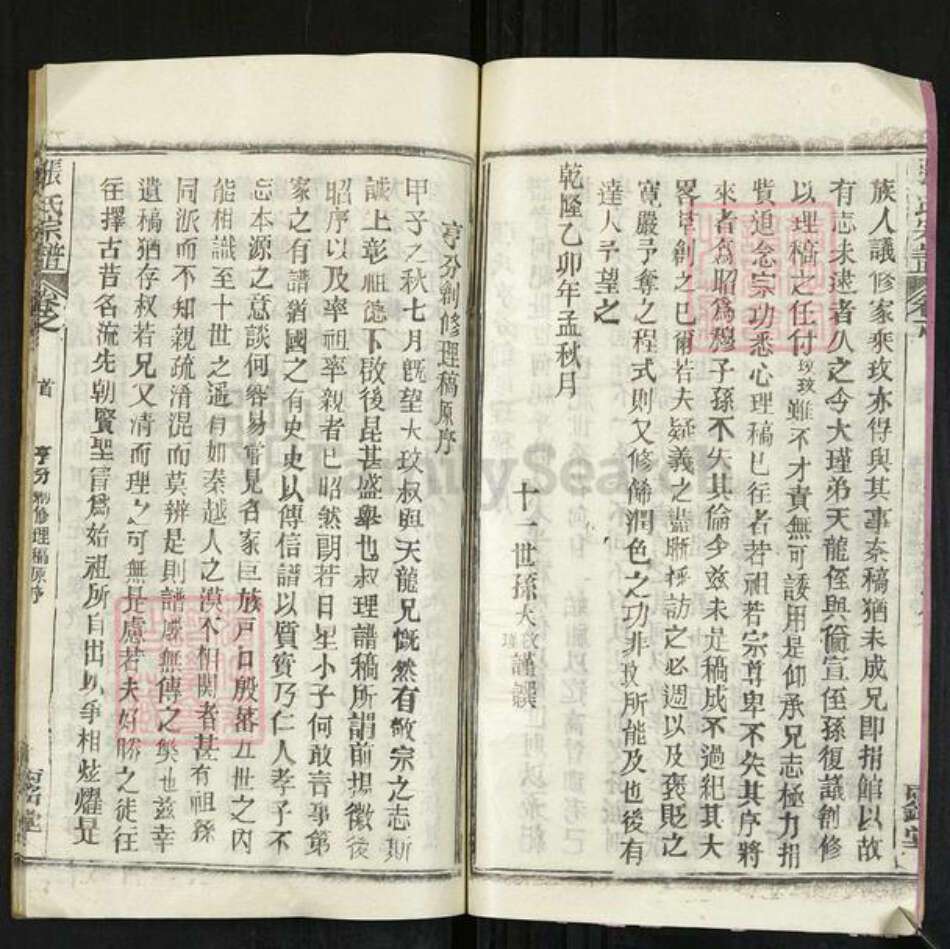 族人議修家乘玫亦得與其事奈稿猶未成兄即捐館以故
有志未逮者久之今大瑾弟天龍侄與侄孫復議創修
以理稿之任付玫玫雖不才責無可諉用是仰承兄志極力捐
貲追念宗功悉心理稿已往者若祖若宗尊卑不失其序將
來者為昭為穆子孫不失其倫今茲未是稿成不過紀其大
畧草創之已爾若夫疑義之採訪之必週以及褒貶之
寬嚴予奪之程式則又修飾潤色之功非玫所能及也後有
達人予望之
乾隆乙卯年孟秋月
十一世孫大玫謹譔
亨分創修理稿原序
甲子之秋七月既望大玫叔與天龍兄慨然有敬宗之志斯
誠上彰祖德下啟後昆甚盛舉也叔理譜稿所謂前揚徽後
昭序以及率祖率親者已昭然朗若日星小子何敢言第
家之有譜猶國之有史史以傳信譜以質實乃仁人孝子不
忘本源之意談何容易常見各家巨族戶口殷蕃五世之內
能相識至十世之遙有如秦越人之漠不相關者甚有祖孫
同派而不知親疏淆混而莫辨是則譜無傳之獘也茲幸
遺稿猶存叔若兄又清而理之可無是慮若夫好勝之徒往
往擇古昔名流先朝賢聖冒為始祖所自出以爭相炫燿是
張氏宗譜
卷之
首
亨分創修理稿原序
堂